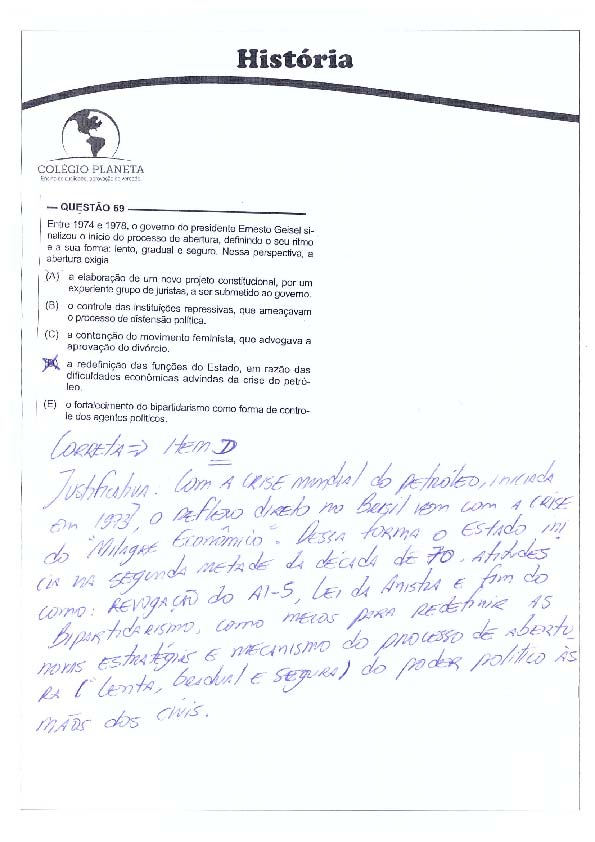 História
COLÉGIO PLANETA
Ensino de qualidade, aprovação de verdade.
QUESTÃO 59
Entre 1974 e 1978, o governo do presidente Ernesto Geisel si-
nalizou o início do processo de abertura, definindo o seu ritmo
e a sua forma: lento, gradual e seguro. Nessa perspectiva, a
abertura exigia
(A) a elaboração de um novo projeto constitucional, por um
experiente grupo de juristas, a ser submetido ao governo.
(B) o controle das instituições repressivas, que ameaçavam
o processo de distensão política.
(C) a contenção do movimento feminista, que advogava a
aprovação do divórcio.
a redefinição das funções do Estado, em razão das
dificuldades econômicas advindas da crise do petró-
leo.
(E) o fortalecimento do bipartidarismo como forma de contro-
le dos agentes políticos.
CORRETA => Item D
Justificativa. Com A CRISE mundial do petróleo, iniciada
em 1973, o reflexo direto no Brasil vem com A CRISE
do "Milagre Econômico". Dessa forma o Estado ini
cia na segunda metade da década de 70, atitudes
como: REVOGAÇÃO do AI-5, Lei da Anistia e fim do
Bipartidarismo, como meios para redefinir as
novas estratégias e mecanismo do processo de abertu
RA (lenta, gradual e segura) do poder político às
mãos dos civis.